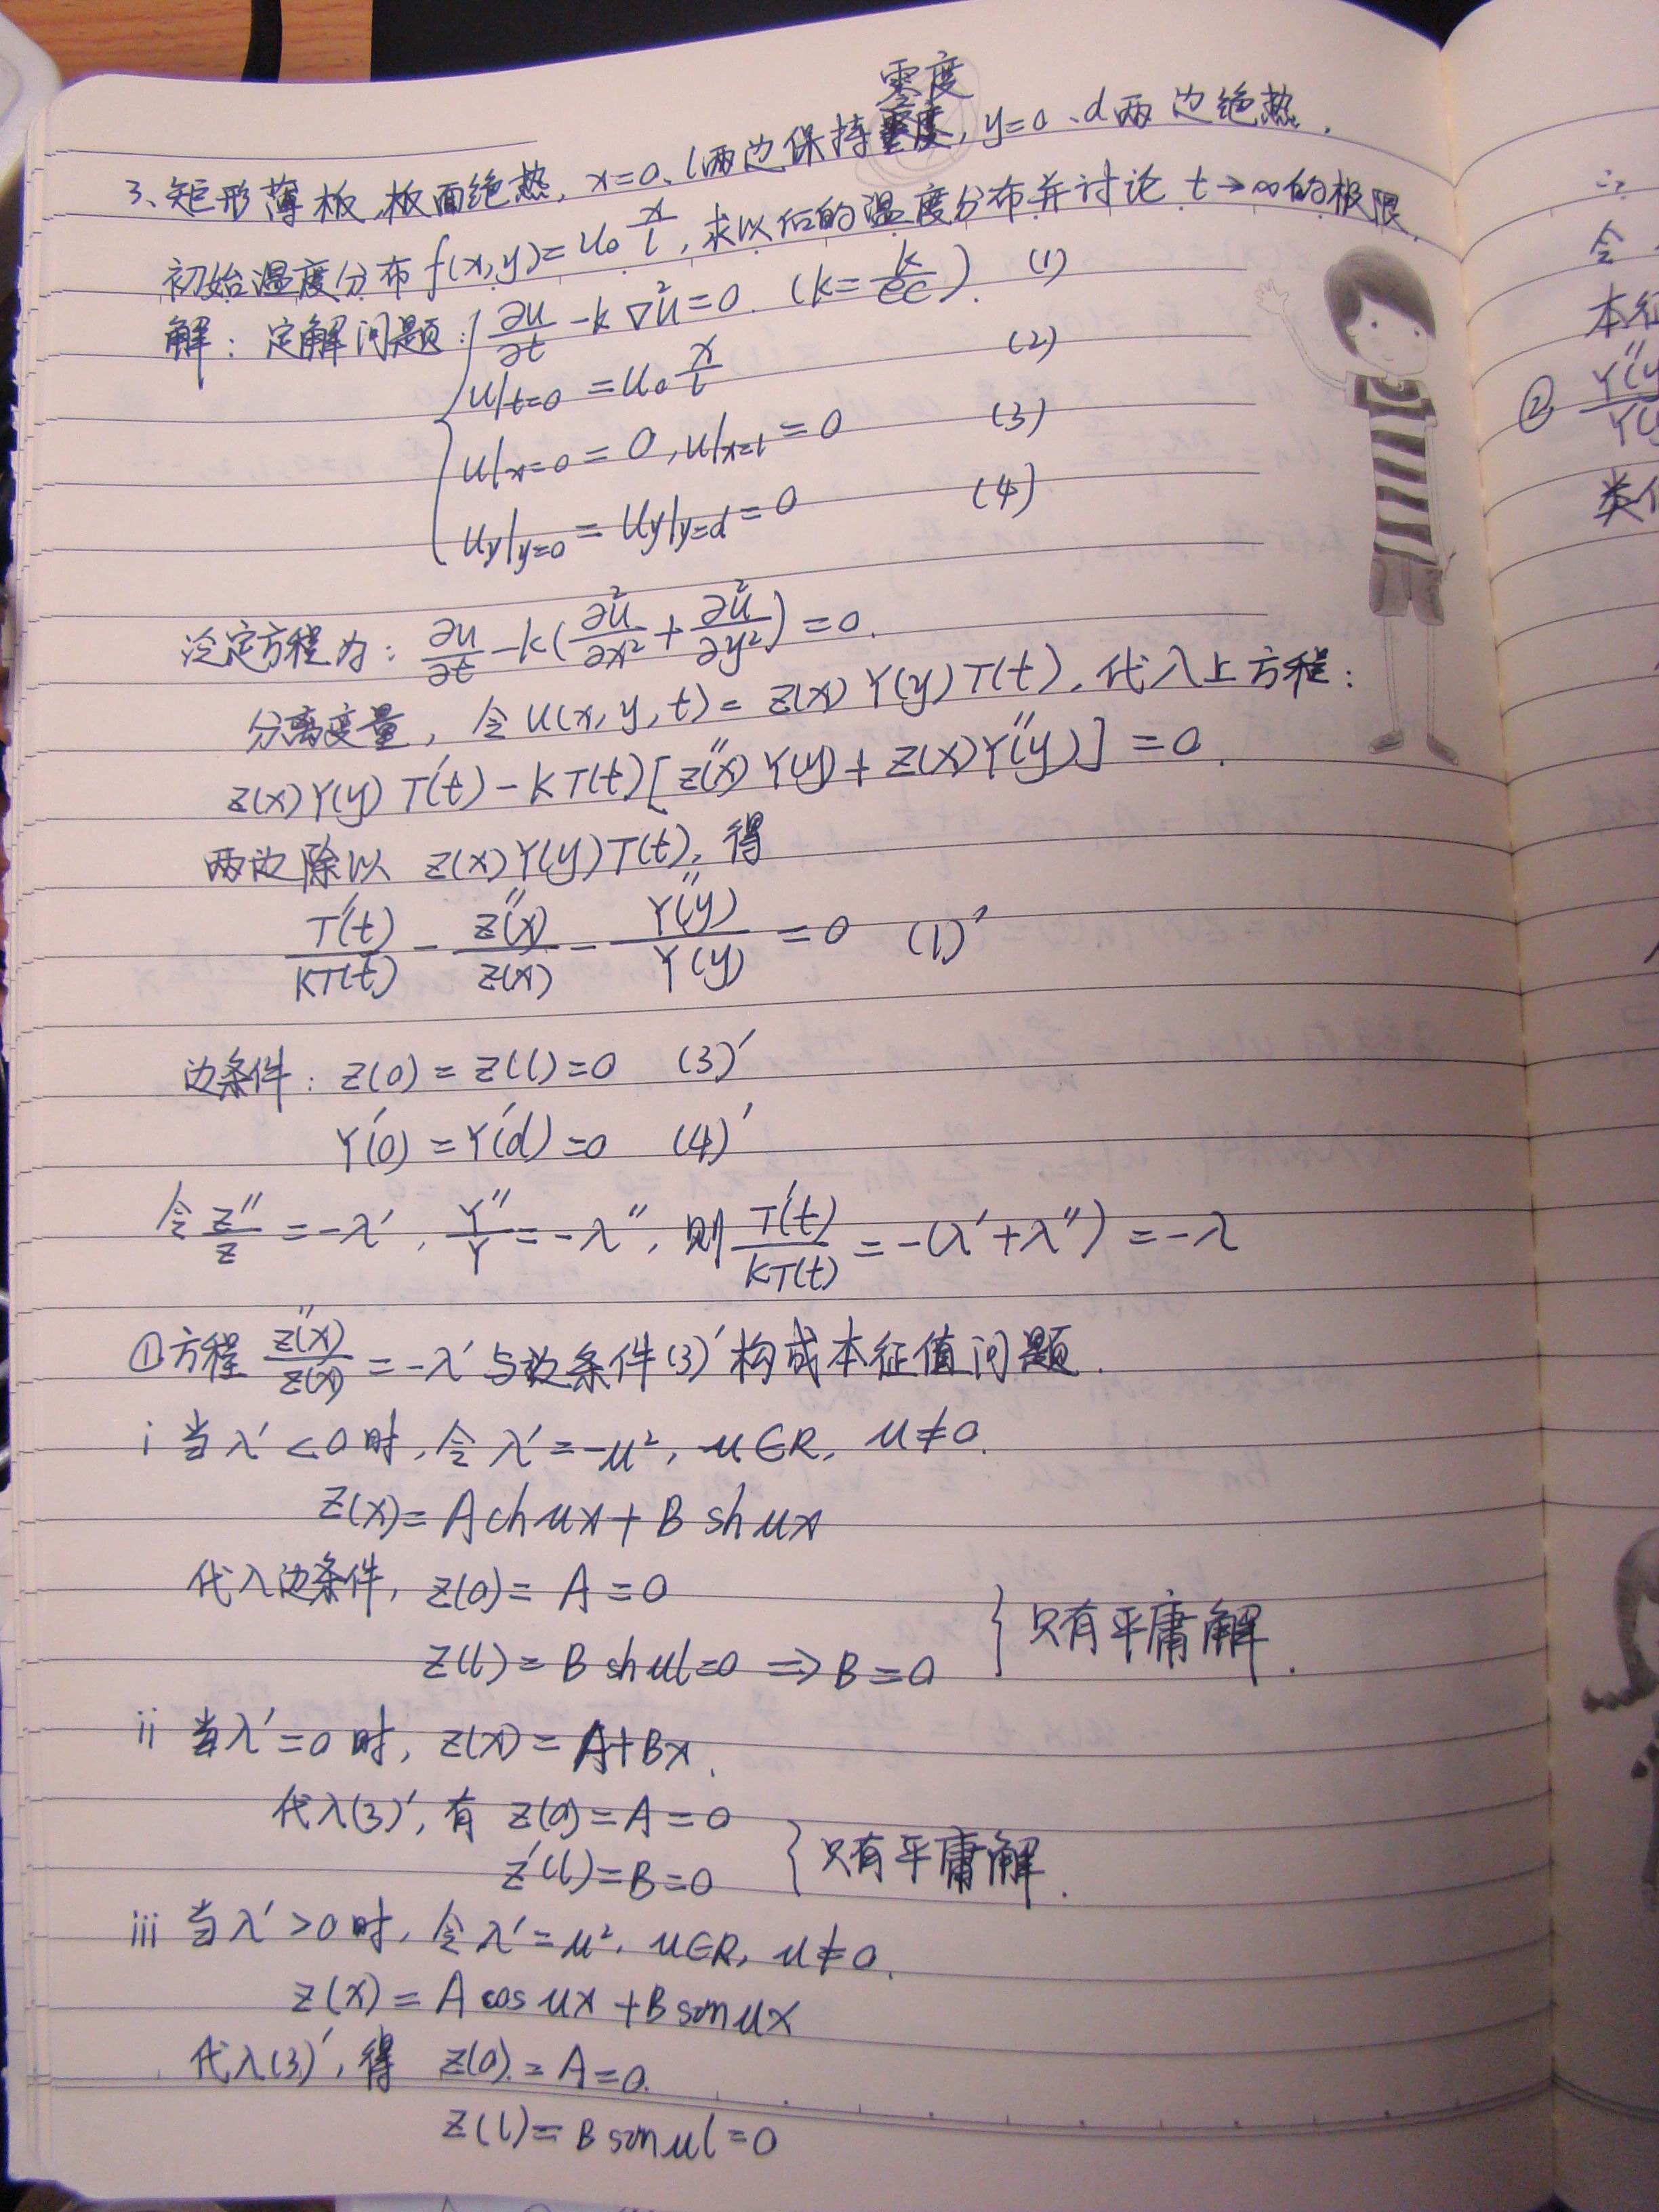 零度
3、矩形薄板,板面绝热,x=0、l两边保持零度,y=0、d两边绝热.
初始温度分布f(x,y)=u₀ x/l,求以后的温度分布并讨论 t→∞的极限.
解:定解问题:{ ∂u/∂t - k∇²u=0. (k=k/ρc). (1)
u|t=0 = u₀ x/l (2)
u|x=0 = 0, u|x=l = 0 (3)
uy|y=0 = uy|y=d = 0 (4)
泛定方程为: ∂u/∂t - k(∂²u/∂x² + ∂²u/∂y²)=0.
分离变量,令u(x,y,t)= Z(x)Y(y)T(t),代入上方程:
Z(x)Y(y)T'(t) - kT(t)[Z''(x)Y(y)+Z(x)Y''(y)]=0.
两边除以 Z(x)Y(y)T(t),得
T'(t)/kT(t) - Z''(x)/Z(x) - Y''(y)/Y(y) = 0 (1)'
边条件: Z(0)=Z(l)=0 (3)'
Y'(0)=Y'(d)=0 (4)'
令 Z''/Z = -λ', Y''/Y = -λ'', 则 T'(t)/kT(t) = -(λ'+λ'') = -λ
①方程 Z''(x)/Z(x) = -λ' 与边条件(3)'构成本征值问题.
i 当λ'<0时,令λ'=-μ², μ∈R, μ≠0.
Z(x)= A ch μx + B sh μx
代入边条件, Z(0)= A=0
Z(l)= B sh μl=0 ⇒ B=0 } 只有平庸解.
ii 当λ'=0时, Z(x)= A+Bx.
代入(3)', 有 Z(0)=A=0
Z'(l)=B=0 } 只有平庸解.
iii 当λ'>0时,令λ'=μ², μ∈R, μ≠0.
Z(x)= A cos μx + B sin μx
代入(3)',得 Z(0)=A=0.
Z(l)= B sin μl=0
∴
令
本征
② Y''(y)/Y(y)
类似